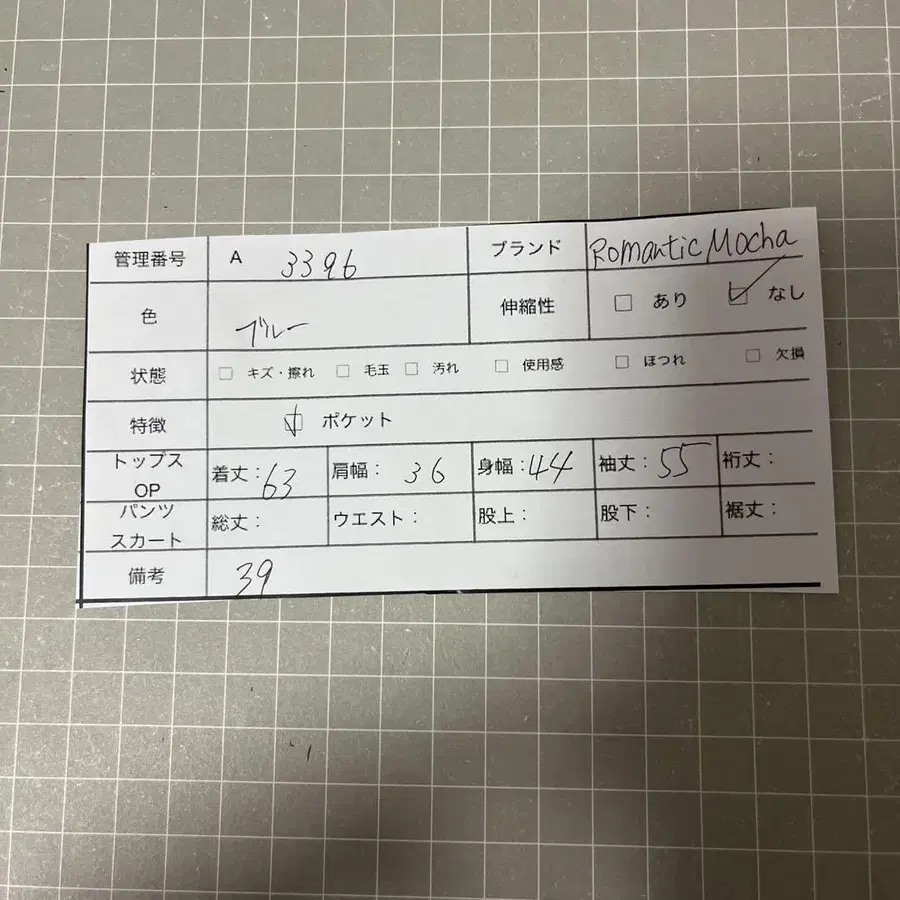 管理番号 A 3396 ブランド Romantic Mocha
色 ブルー 伸縮性 □ あり ☑ なし
状態 □ キズ・擦れ □ 毛玉 □ 汚れ □ 使用感 □ ほつれ □ 欠損
特徴 ☑ ポケット
トップス OP 着丈：63 肩幅： 36 身幅：44 袖丈：55 裄丈：
パンツ スカート 総丈： ウエスト： 股上： 股下： 裾丈：
備考 39